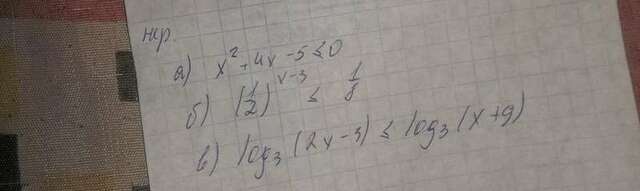 нр.
а) x² + 4x - 5 ≤ 0
б) (1/2)^(x-3) ≤ 1/8
в) log₃ (2x-3) ≤ log₃ (x+9)